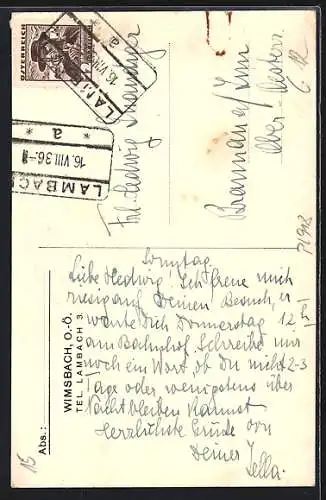 ÖSTERREICH
LAMBACH
16. VIII. 36
* a *
LAMBACH
16. VIII
a
Frl. Hedwig
Braunau a/Inn
Ober-Österr.
P1998
Sonntag
Liebe Hedwig! Ich freue mich
riesig auf Deinen Besuch, er
warte Dich Donnerstag 12
am Bahnhof. Schreibe mir
noch ein Wort ob Du nicht 2-3
Tage oder wenigstens über
Nacht bleiben kannst
Herzlichste Grüße von
Deiner
Abs.:
WIMSBACH, O.-Ö.
TEL. LAMBACH 3.
15